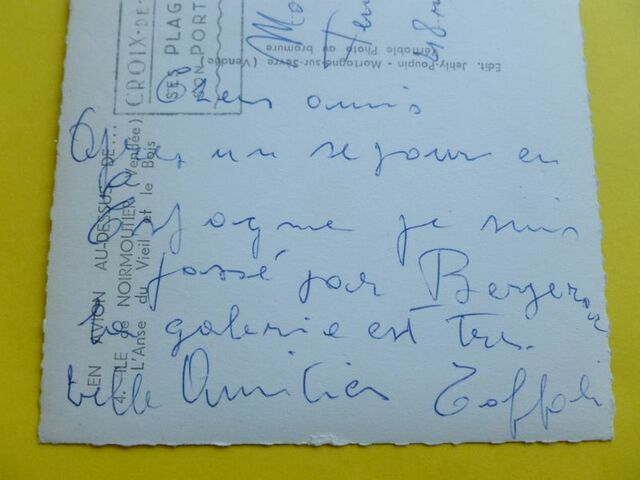 Chers amis
Après un sejour en
Espagne je suis
passé par Bergerac
la galerie est tres
belle Amitiés Toffoli
EN AVION AU-DESSUS DE...
4. ILE de NOIRMOUTIER (Vendée)
L'Anse du Vieil et le Bois
CROIX-DE-
SES PLAG
SON PORT
Edit. Jehly-Poupin - Mortagne-sur-Sèvre (Vendée)
Véritable Photo au bromure